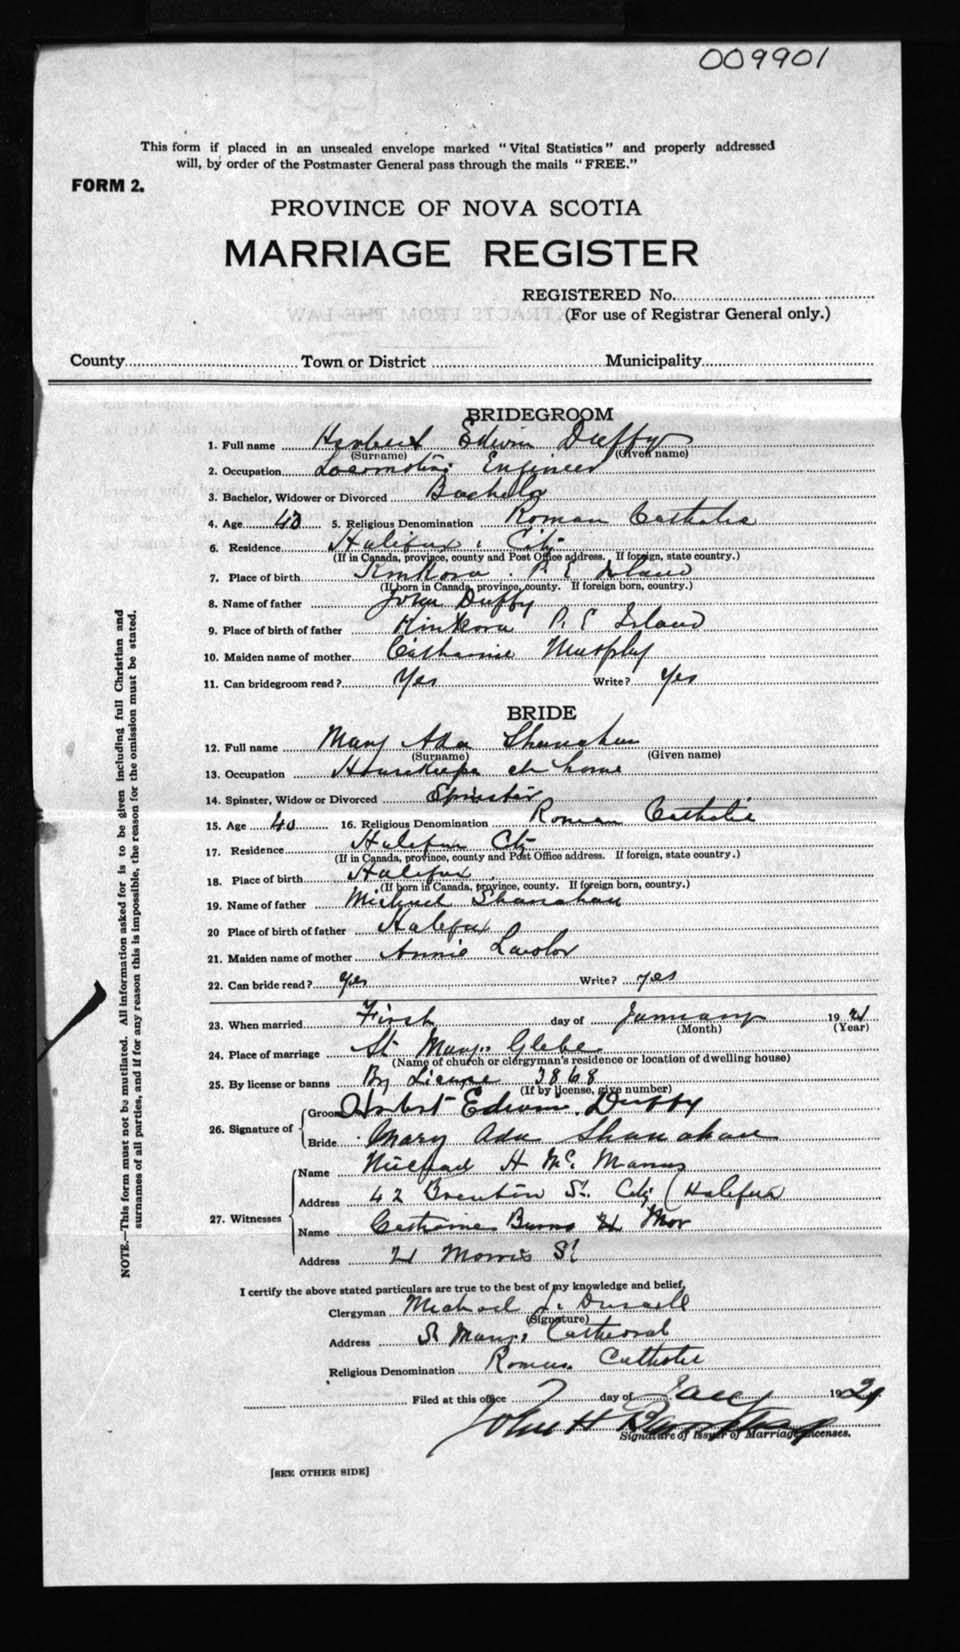 009901
This form if placed in an unsealed envelope marked "Vital Statistics" and properly addressed
will, by order of the Postmaster General pass through the mails "FREE."
FORM 2.
PROVINCE OF NOVA SCOTIA
MARRIAGE REGISTER
REGISTERED No.
(For use of Registrar General only.)
County Town or District Municipality
BRIDEGROOM
1. Full name Herbert Edwin Duffy
(Surname) (Given name)
2. Occupation Locomotive Engineer
3. Bachelor, Widower or Divorced Bachelor
4. Age 43 5. Religious Denomination Roman Catholic
6. Residence Halifax City
(If in Canada, province, county and Post Office address. If foreign, state country.)
7. Place of birth Kinkora P. E Island
(If born in Canada, province, county. If foreign born, country.)
8. Name of father John Duffy
9. Place of birth of father Kinkora P. E Island
10. Maiden name of mother Catharine Murphy
11. Can bridegroom read? Yes Write? Yes
BRIDE
12. Full name Mary Ada Shanahan
(Surname) (Given name)
13. Occupation Housekeeper at home
14. Spinster, Widow or Divorced Spinster
15. Age 40 16. Religious Denomination Roman Catholic
17. Residence Halifax City
(If in Canada, province, county and Post Office address. If foreign, state country.)
18. Place of birth Halifax
(If born in Canada, province, county. If foreign born, country.)
19. Name of father Michael Shanahan
20 Place of birth of father Halifax
21. Maiden name of mother Annie Lawlor
22. Can bride read? yes Write? yes
23. When married First day of January 19
(Month) (Year)
24. Place of marriage St Mary's Glebe
(Name of church or clergyman's residence or location of dwelling house)
25. By license or banns By License 3868
(If by license, give number)
26. Signature of Groom Herbert Edwin Duffy
Bride Mary Ada Shanahan
27. Witnesses Name H Mc Manus
Address 42 Brenton St. City (Halifax
Name Catharine Burns
Address Morris St
I certify the above stated particulars are true to the best of my knowledge and belief,
Clergyman Michael J.
(Signature)
Address St Mary's Cathedral
Religious Denomination Roman Catholic
Filed at this office 7 day of Jany 192
John H
Signature of Issuer of Marriage Licenses.
[SEE OTHER SIDE]
NOTE.—This form must not be mutilated. All information asked for is to be given including full Christian and
surnames of all parties, and if for any reason this is impossible, the reason for the omission must be stated.